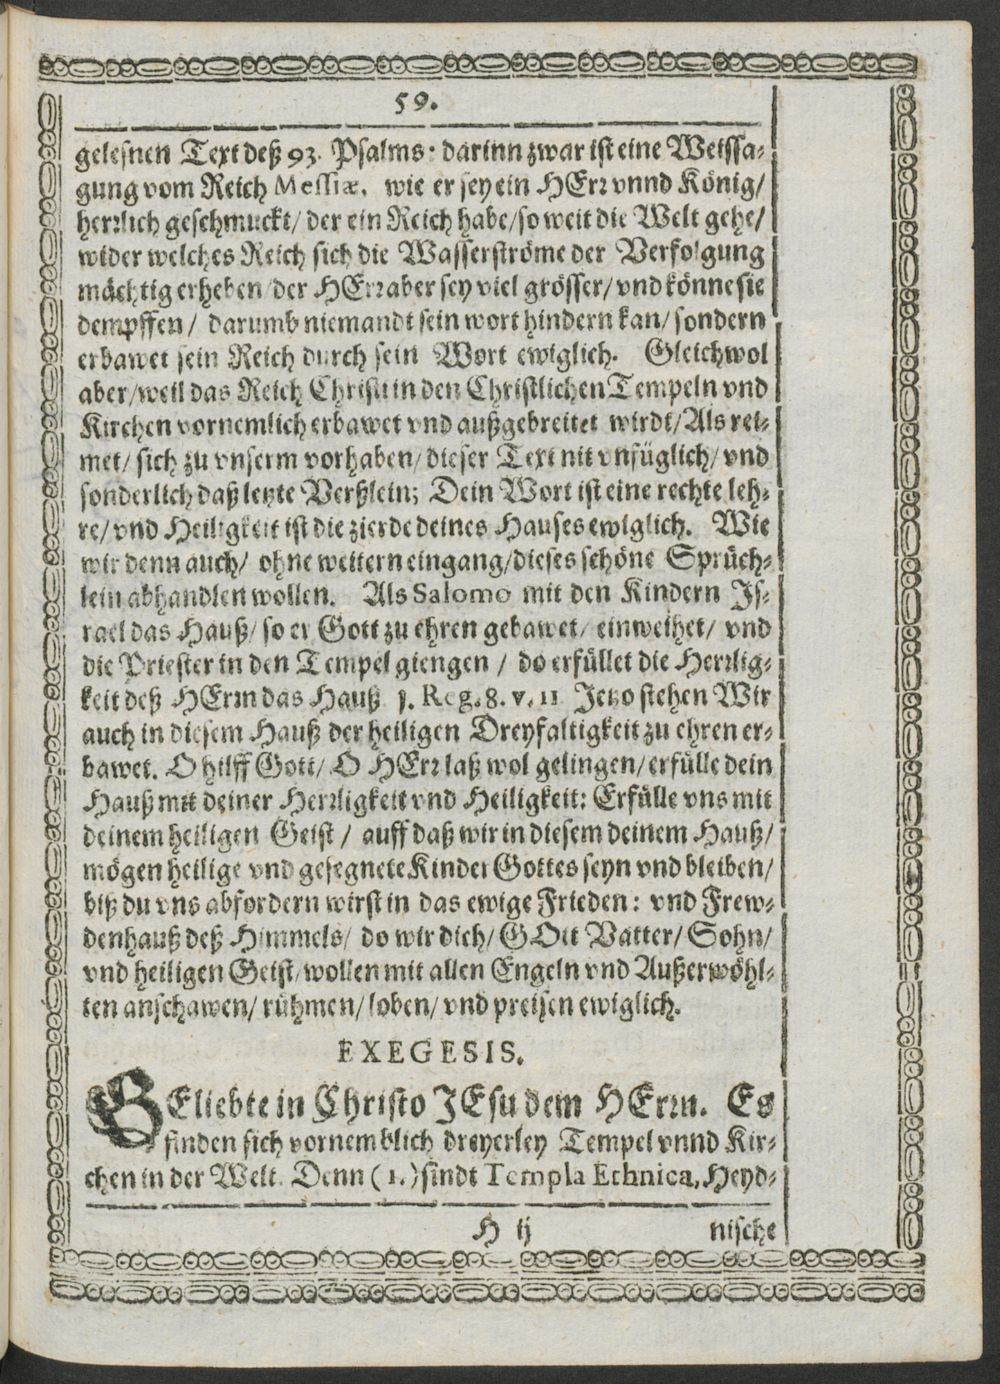 59.
gelesnen Text deß 93. Psalms: darinn zwar ist eine Weissa-
gung vom Reich Messiæ, wie er sey ein HErr vnnd König/
herrlich geschmuckt/ der ein Reich habe/ so weit die Welt gehe/
wider welches Reich sich die Wasserströme der Verfolgung
mächtig erheben/ der HErr aber sey viel grösser/ vnd könne sie
dempffen/ darumb niemandt sein wort hindern kan/ sondern
erbawet sein Reich durch sein Wort ewiglich. Gleichwol
aber/ weil das Reich Christi in den Christlichen Tempeln vnd
Kirchen vornemlich erbawet vnd außgebreitet wirdt/ Als rei-
met/ sich zu vnserm vorhaben/ dieser Text nit vnfüglich/ vnd
sonderlich daß letzte Verßlein; Dein Wort ist eine rechte leh-
re/ vnd Heiligkeit ist die zierde deines Hauses ewiglich. Wie
wir denn auch/ ohne weitern eingang/ dieses schöne Sprüch-
lein abhandlen wollen. Als Salomo mit den Kindern Is-
rael das Hauß/ so er Gott zu ehren gebawet/ einweihet/ vnd
die Priester in den Tempel giengen / do erfüllet die Herrlig-
keit deß HErrn das Hauß 1. Reg. 8. v. 11 Jetzo stehen Wir
auch in diesem Hauß der heiligen Dreyfaltigkeit zu ehren er-
bawet. O hilff Gott/ O HErr laß wol gelingen/ erfülle dein
Hauß mit deiner Herrligkeit vnd Heiligkeit: Erfülle vns mit
deinem heiligen Geist / auff daß wir in diesem deinem Hauß/
mögen heilige vnd gesegnete Kinder Gottes seyn vnd bleiben/
biß du vns abfordern wirst in das ewige Frieden: vnd Frew-
denhauß deß Himmels/ do wir dich/ GOtt Vatter/ Sohn/
vnd heiligen Geist/ wollen mit allen Engeln vnd Außerwöhl-
ten anschawen/ rühmen/ loben/ vnd preisen ewiglich.
EXEGESIS.
GEliebte in Christo JEsu dem HErrn. Es
finden sich vornemblich dreyerley Tempel vnnd Kir-
chen in der Welt. Denn (1.) sindt Templa Ethnica, Heyd-
H ij nische